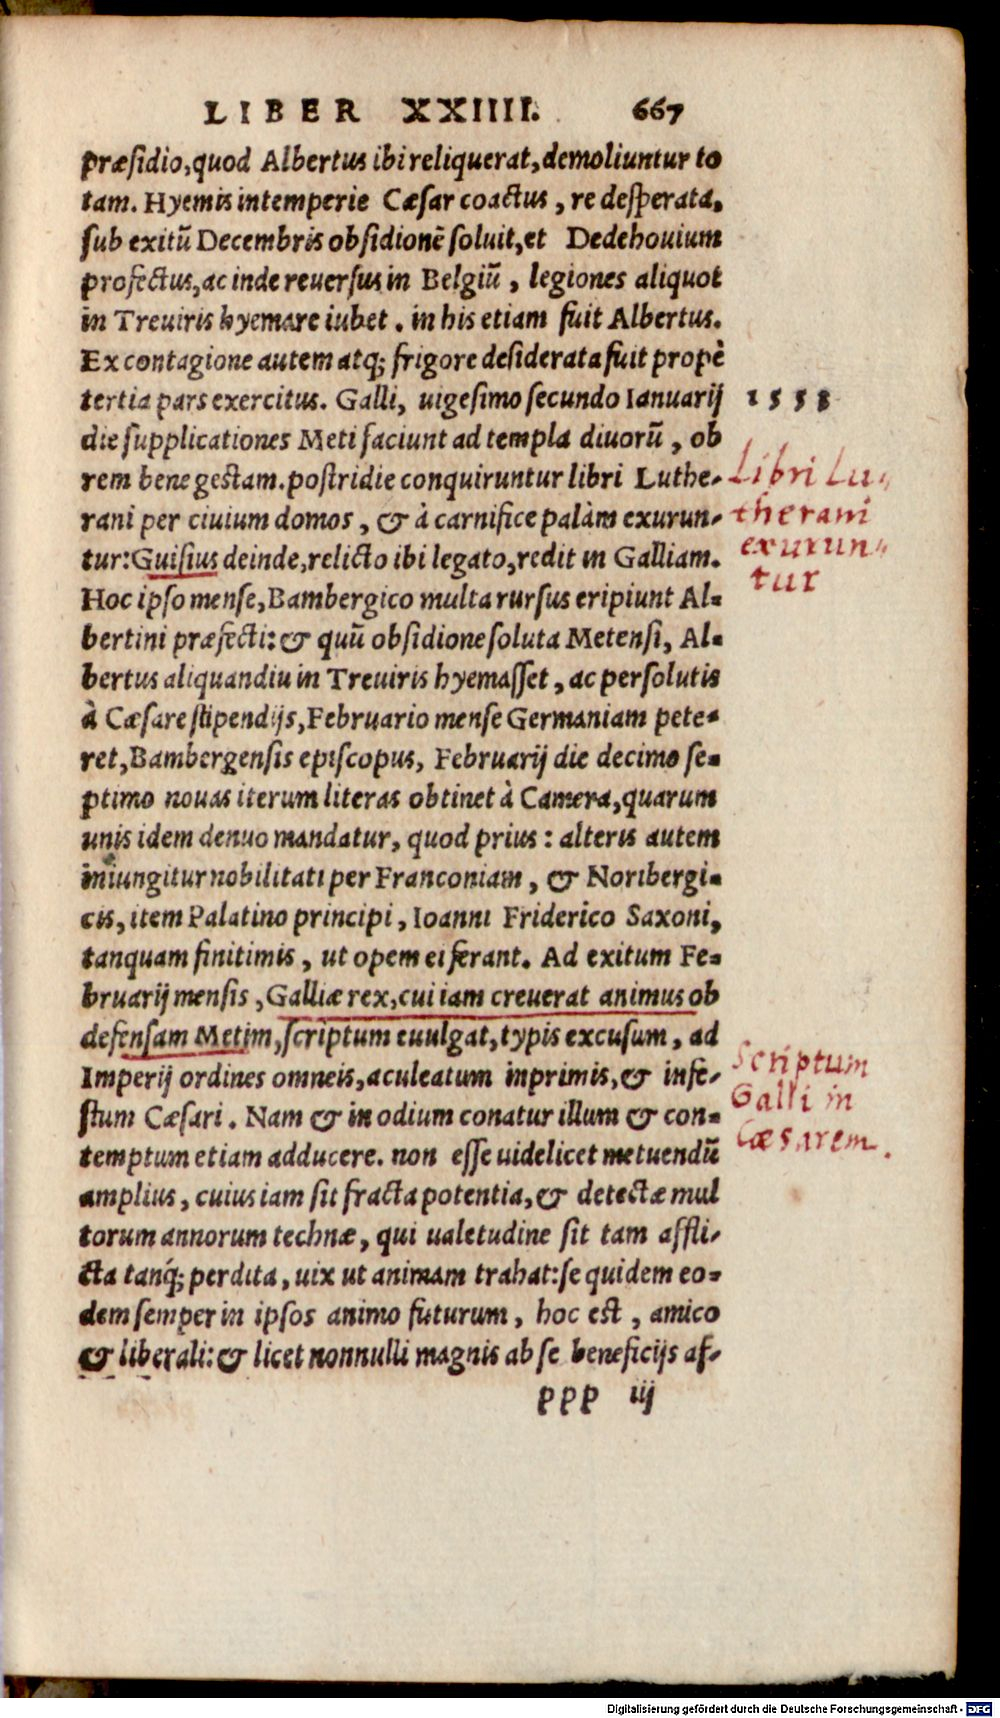 LIBER XXIIII. 667
præsidio, quod Albertus ibi reliquerat, demoliuntur to
tam. Hyemis intemperie Cæsar coactus, re desperata,
sub exitũ Decembris obsidionẽ soluit, et Dedehouium
profectus, ac inde reuersus in Belgiũ, legiones aliquot
in Treuiris hyemare iubet. in his etiam fuit Albertus.
Ex contagione autem atq; frigore desiderata fuit propè
tertia pars exercitus. Galli, uigesimo secundo Ianuarij
1553
die supplicationes Meti faciunt ad templa diuorũ, ob
rem bene gestam. postridie conquiruntur libri Luthe-
rani per ciuium domos, & à carnifice palàm exurun-
tur: Guisius deinde, relicto ibi legato, redit in Galliam.
Libri Lu-
therani
exurun-
tur
Hoc ipso mense, Bambergico multa rursus eripiunt Al-
bertini præfecti: & quũ obsidione soluta Metensi, Al-
bertus aliquandiu in Treuiris hyemasset, ac persolutis
à Cæsare stipendijs, Februario mense Germaniam pete-
ret, Bambergensis episcopus, Februarij die decimo se-
ptimo nouas iterum literas obtinet à Camera, quarum
unis idem denuo mandatur, quod prius: alteris autem
iniungitur nobilitati per Franconiam, & Noribergi-
cis, item Palatino principi, Ioanni Friderico Saxoni,
tanquam finitimis, ut opem ei ferant. Ad exitum Fe-
bruarij mensis, Galliæ rex, cui iam creuerat animus ob
defensam Metim, scriptum euulgat, typis excusum, ad
Imperij ordines omneis, aculeatum inprimis, & infe-
stum Cæsari. Nam & in odium conatur illum & con-
temptum etiam adducere. non esse uidelicet metuendũ
Scriptum
Galli in
Cæsarem.
amplius, cuius iam sit fracta potentia, & detectæ mul
torum annorum technæ, qui ualetudine sit tam affli-
cta tanq́; perdita, uix ut animam trahat: se quidem eo-
dem semper in ipsos animo futurum, hoc est, amico
& liberali: & licet nonnulli magnis ab se beneficijs af-
ppp iij
Digitalisierung gefördert durch die Deutsche Forschungsgemeinschaft - DFG